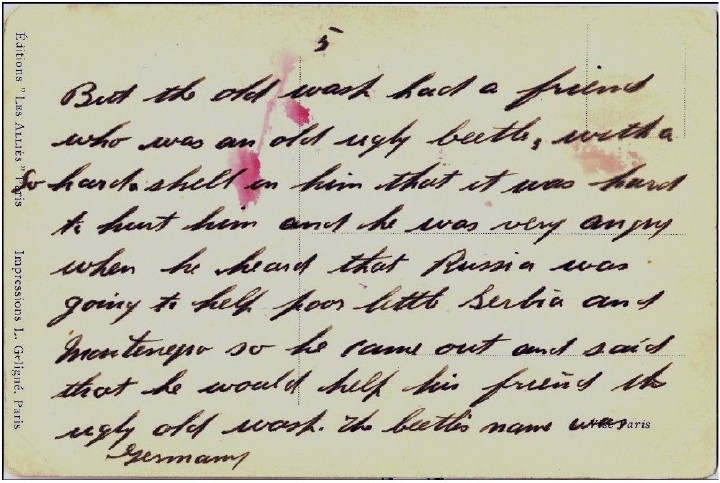 5
But the old wash had a friend
who was an old ugly beetle, with a
so hard a shell on him that it was hard
to hurt him and he was very angry
when he heard that Russia was
going to help poor little Serbia and
Montenegro so he came out and said
that he would help his friend the
ugly old wash. The beetle's name was
Germany
Éditions "LES ALLIÉS" Paris
Impressions L. Geligné, Paris
Visé Paris